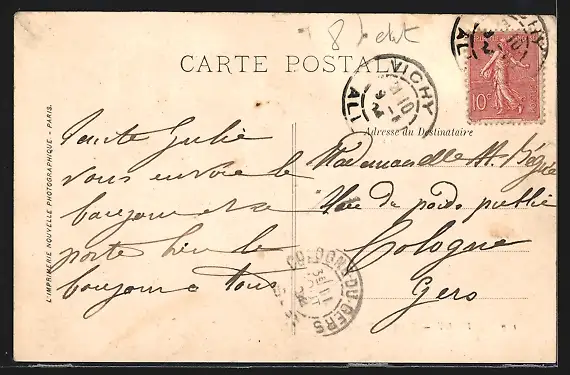 8 7bre
CARTE POSTALE
VICHY
ALL
10c
Adresse du Destinataire
L'IMPRIMERIE NOUVELLE PHOTOGRAPHIQUE - PARIS.
Tante Julie
vous envoie le
bonjour et se
porte bien le
bonjour a tous
Mademoiselle M.
Place du poids public
Cologne
Gers
COLOGNE-DU-GERS